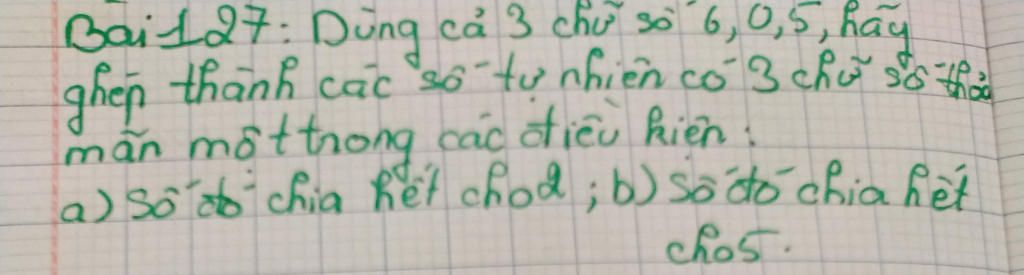 Bài 127: Dùng cả 3 chữ số 6, 0, 5, hãy
ghép thành các số tự nhiên có 3 chữ số thỏa
mãn một trong các điều kiên:
a) Số đó chia hết cho 2; b) Số đó chia hết
cho 5.